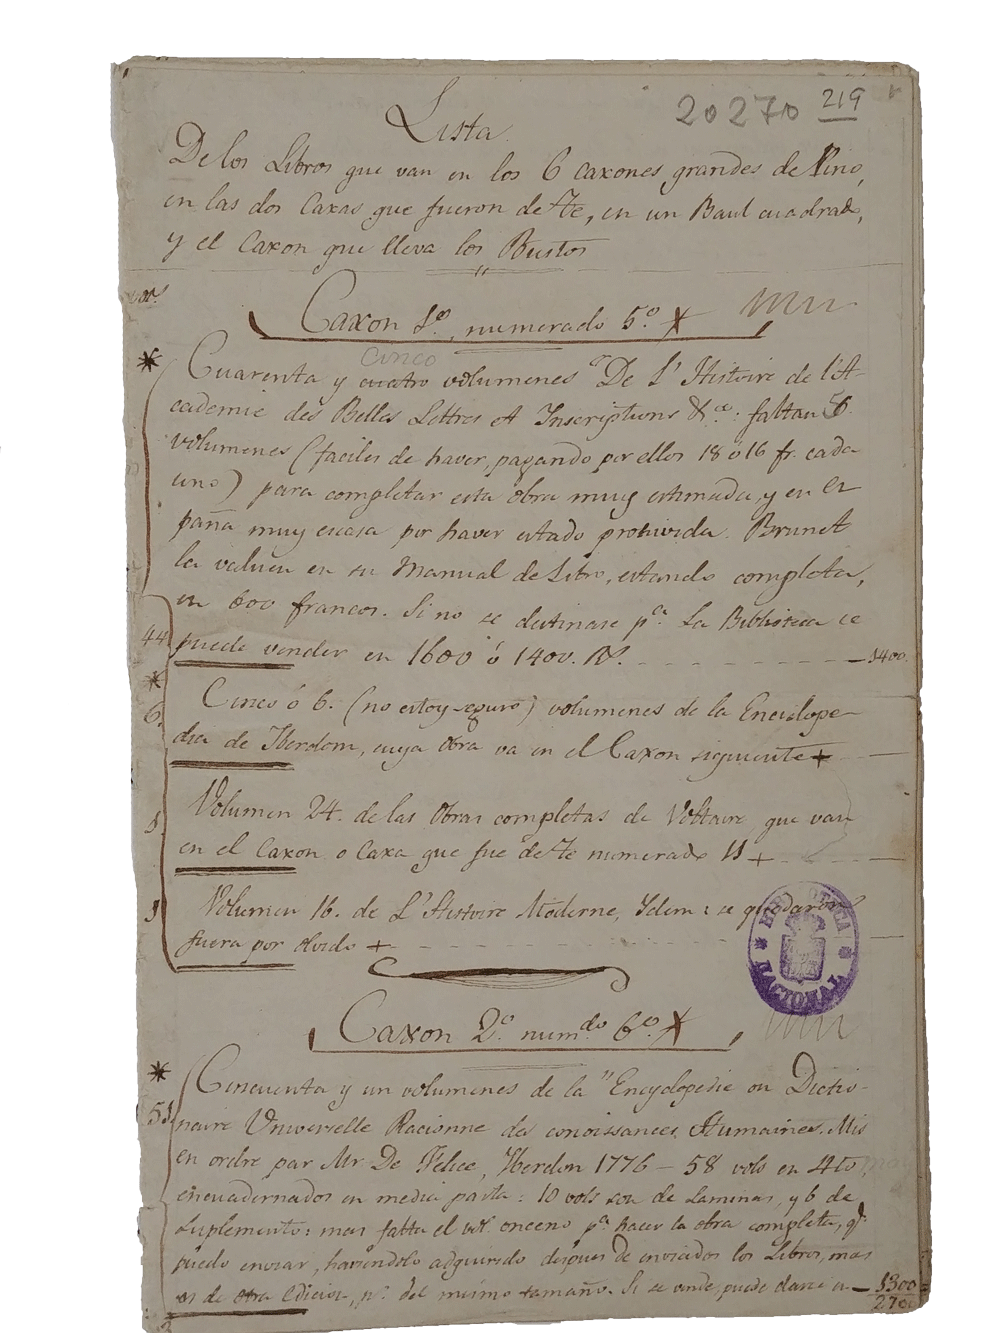 20270 219
Lista
De los Libros que van en los 6 caxones grandes de Pino,
en las dos Caxas que fueron de Te, en un Baul cuadrado,
y el Caxon que lleva los Bustos
Caxon 1º, numerado 5º X
cinco
Cuarenta y cuatro volumenes "De L'Histoire de l'A-
cademie des Belles Lettres et Inscriptions &ca: faltan 6.
volumenes (faciles de haver, pagando por ellos 18 ó 16 fr. cada
uno) para completar esta obra muy estimada, y en Es
paña muy escasa por haver estado prohivida. Brunet
la valúa en su Manual de Libro, estando completa,
en 600 francos. Si no se destinase pª. La Biblioteca se
44 puede vender en 1600 ó 1400. Rs. 1400.
6. Cinco ó 6. (no estoy seguro) volumenes de la Enciclope-
dia de Iberdom, cuya obra va en el Caxon siguiente +
1 Volumen 24. de las Obras completas de Voltaire que van
en el Caxon o Caxa que fue de Te numerado 11 +
1 Volumen 16. de L'Histoire Moderne, Idem: se quedaron
fuera por olvido +
BIBLIOTECA NACIONAL
Caxon 2º numdo 6º X
Cincuenta y un volumenes de la "Encyclopedie ou Dictio-
51 naire Universelle Racionne des conoissances Humaines. Mis
en ordre par Mr De Felice, Iberdon 1776 - 58 vols en 4to,
encuadernados en media pasta: 10 vols son de Laminas, y 6 de
Suplemento: mas falta el vol onceno pª hacer la obra completa, q.
puedo enviar, haviéndolo adquirido despues de enviados los Libros, mas
es de otra Edicion, pº del mismo tamaño. Si se vende, puede darse en 1300
2700